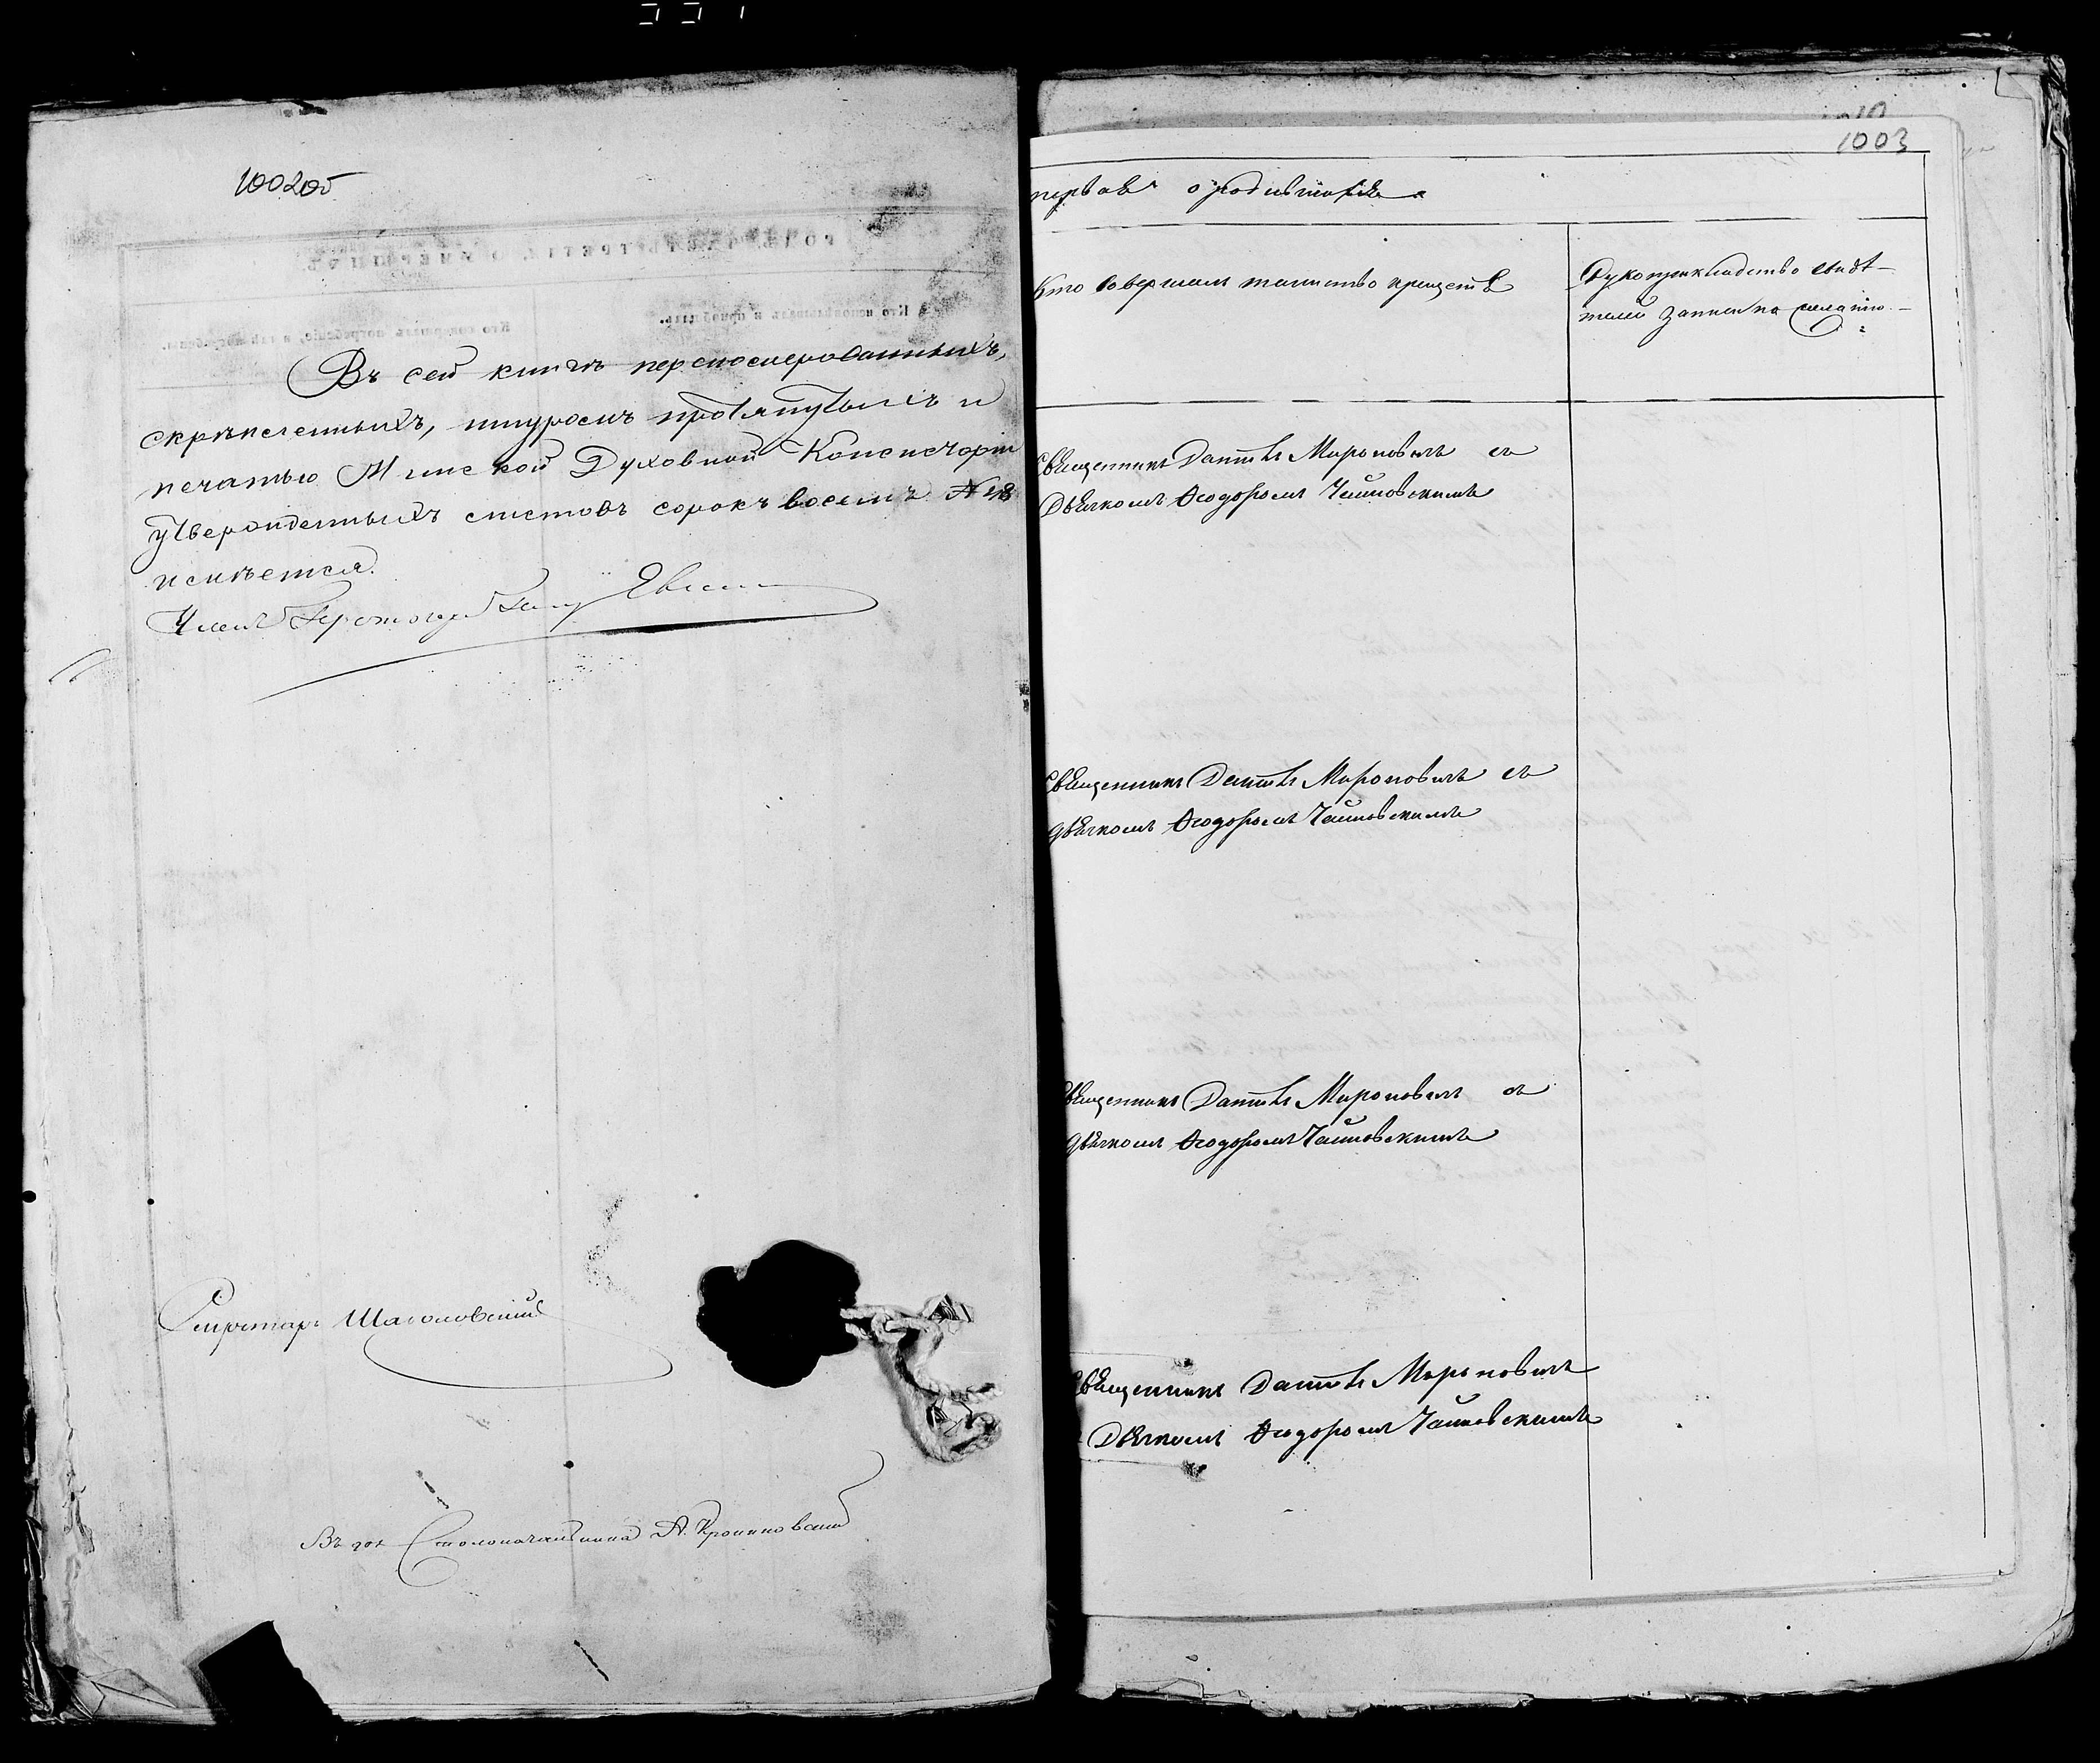 1002об
Въ сей книгѣ перенумерованныхъ,
скрѣпленныхъ, шнуромъ протянутыхъ и
печатью Минской Духовной Консисторіи
утвержденныхъ листовъ сорокъ восемь №48
имѣется.
Членъ Протоіерей
Секретарь
Въ дол. Столоначальника А.
1003
первая о родившихся
Кто совершалъ таинство крещенія
Рукоприкладство свидѣ-
телей записи по желанію
Священникъ Даніилъ Мироновичъ съ
Дьячкомъ Ѳеодоромъ Чайковскимъ
Священникъ Даніилъ Мироновичъ съ
дьячкомъ Ѳеодоромъ Чайковскимъ
Священникъ Даніилъ Мироновичъ съ
дьячкомъ Ѳеодоромъ Чайковскимъ
Священникъ Даніилъ Мироновичъ
Дьячкомъ Ѳеодоромъ Чайковскимъ